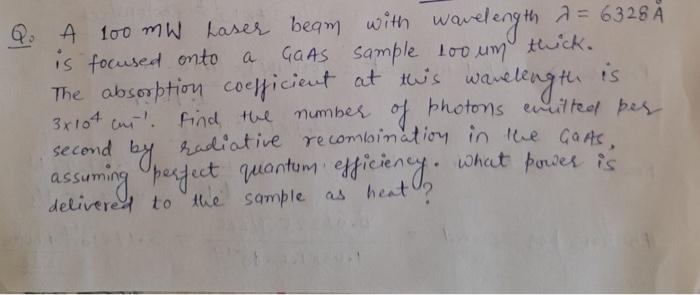 Q. A 100 mW Laser beam with wavelength λ = 6328 Å
is focused onto a GaAs sample 100 um thick.
The absorption coefficient at this wavelength is
3x10⁴ cm⁻¹. Find the number of photons emitted per
second by radiative recombination in the GaAs,
assuming perfect quantum efficiency. What power is
delivered to the sample as heat?